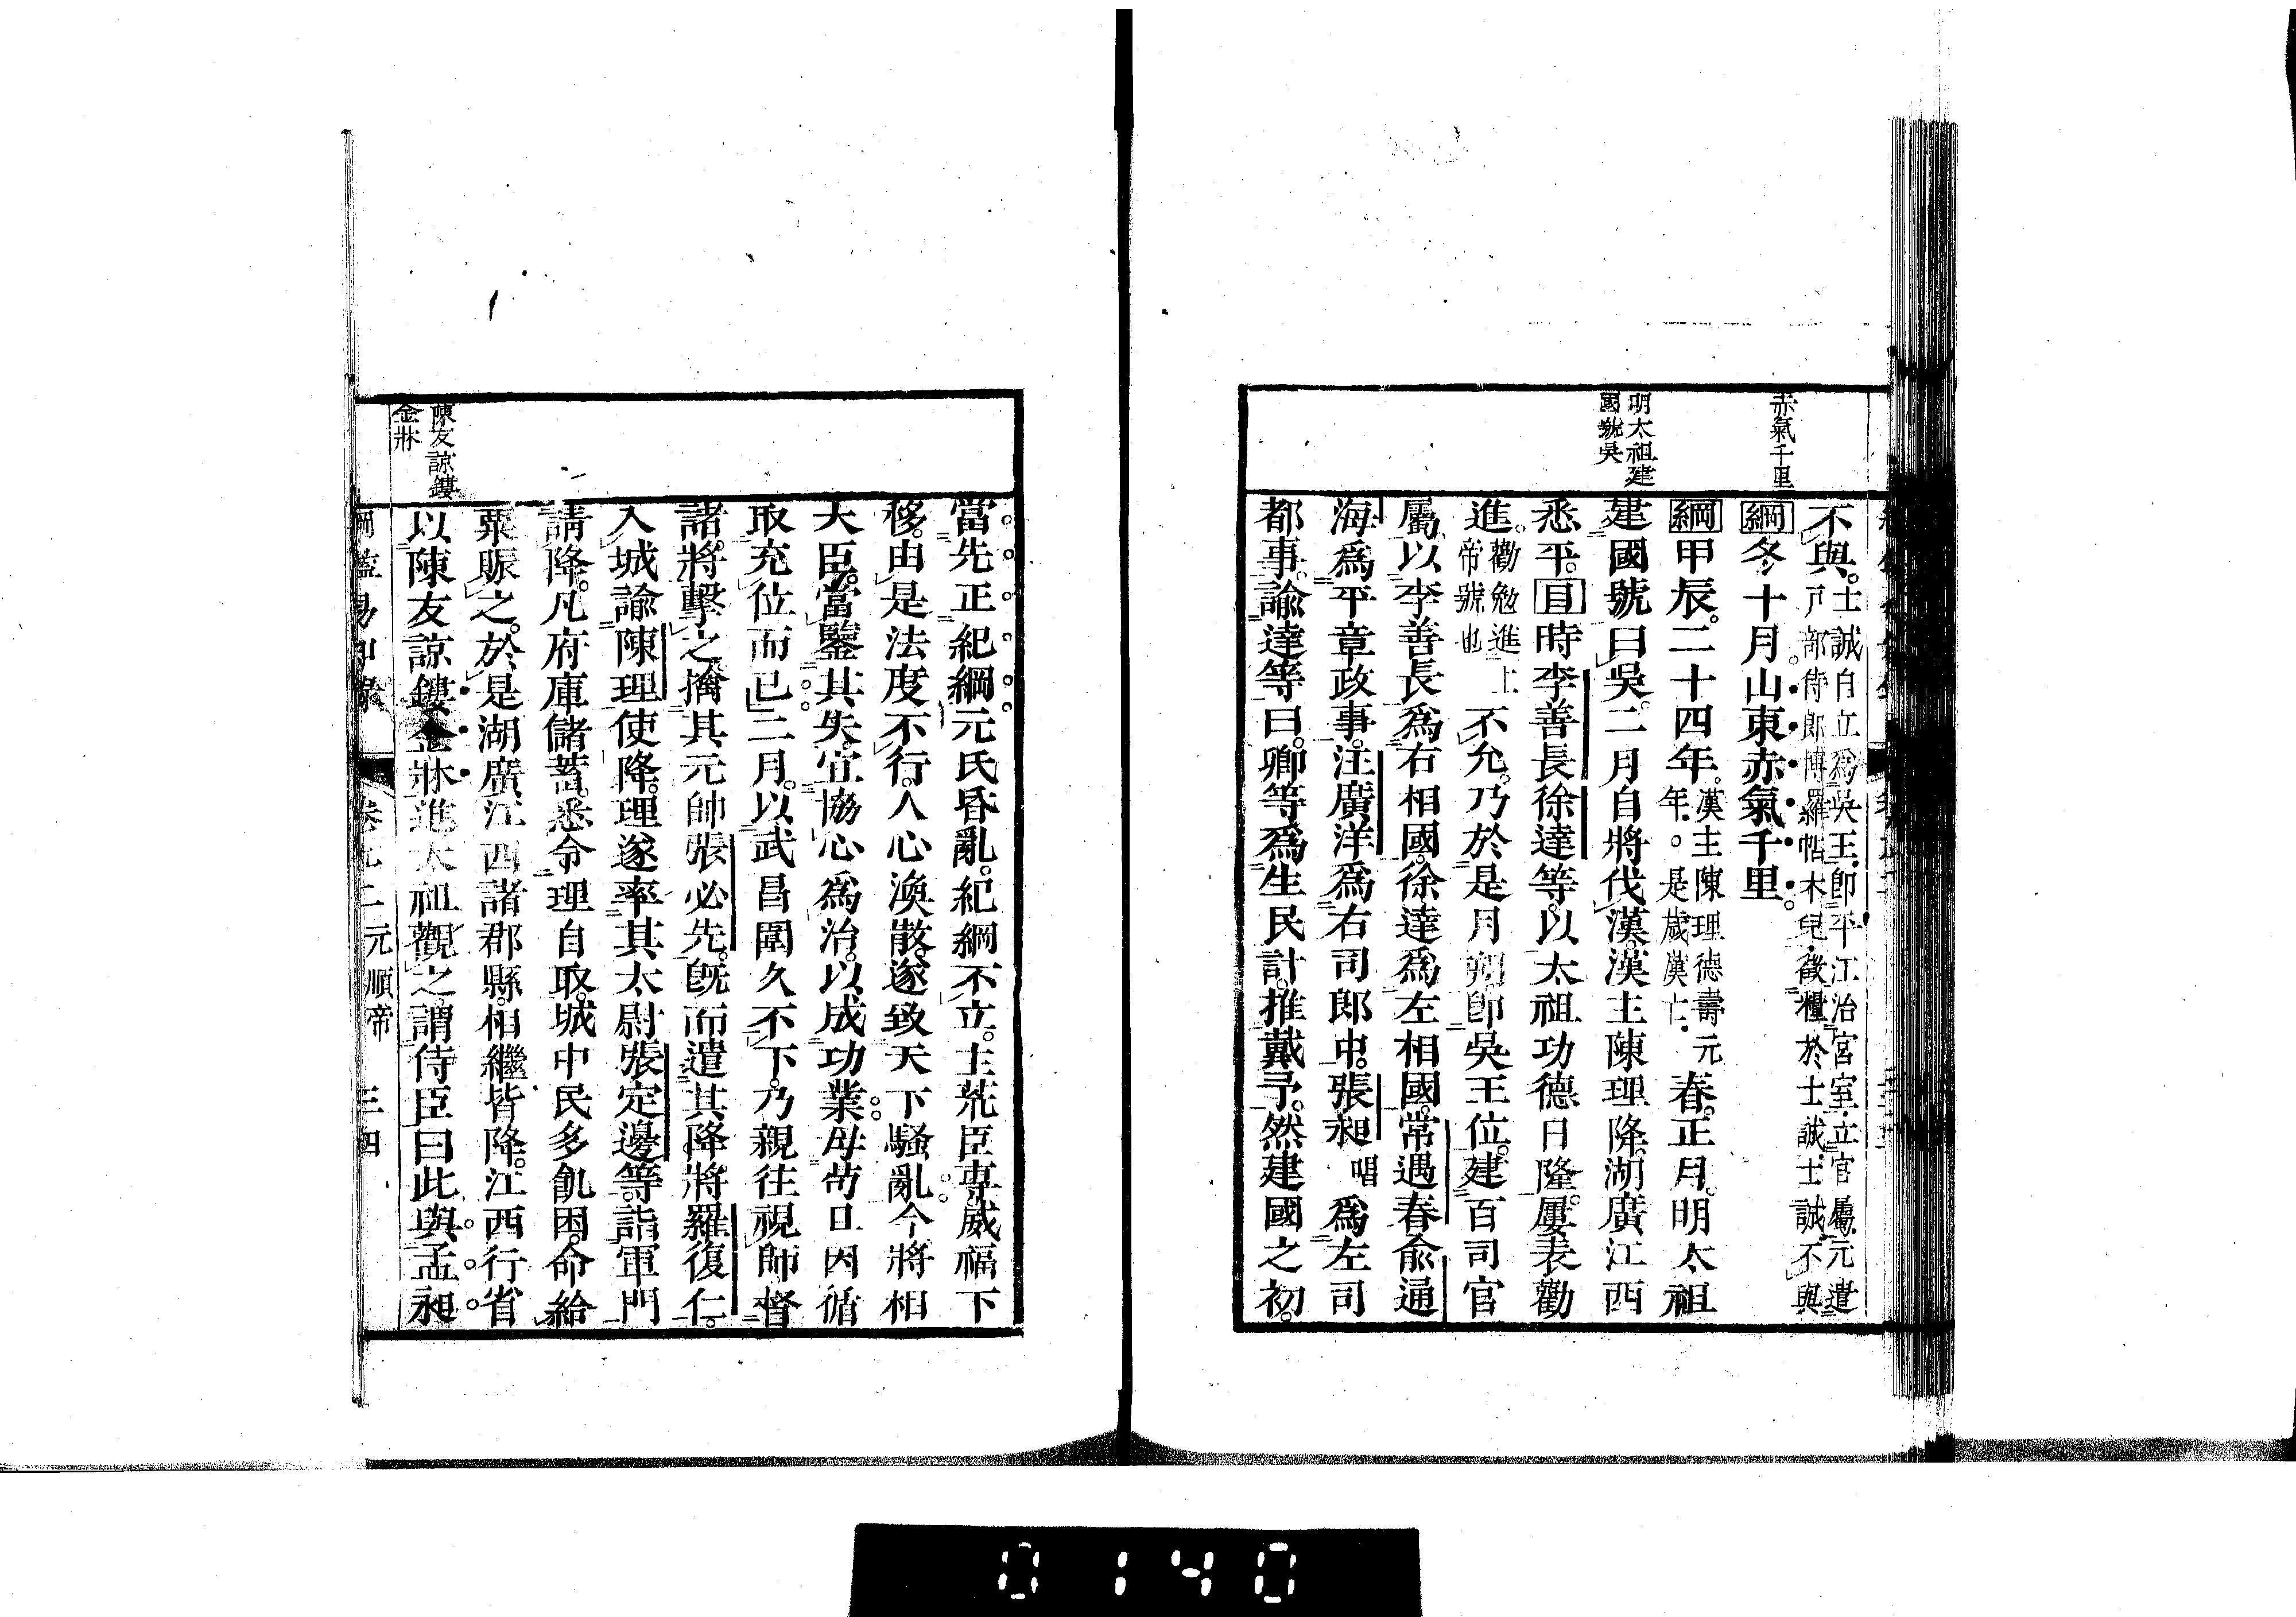 赤氣千里
明太祖建
國號吳
不與。士誠自立爲吳王。卽平江治宮室。立官屬。元遣
戸部侍郎博羅帖木兒。徵糧於士誠。士誠不與
綱冬十月。山東赤氣千里。
綱甲辰。二十四年。漢主陳理德壽元
年。○是歲漢亡。春。正月。明太祖
建國號曰吳。二月自將伐漢。漢主陳理降。湖廣江西
悉平。目時李善長徐達等。以太祖功德日隆。屢表勸
進。勸勉進上
帝號也不允。乃於是月朔。卽吳王位。建百司官
屬。以李善長爲右相國。徐達爲左相國。常遇春兪通
海爲平章政事。汪廣洋爲右司郎中。張昶唱爲左司
都事。諭達等曰。卿等爲生民計。推戴予。然建國之初。
當先正紀綱。元氏昏亂。紀綱不立。主荒臣專。威福下
移。由是法度不行。人心渙散。遂致天下騷亂。今將相
大臣。當鑒其失。宜協心爲治。以成功業。毋苟且因循
取充位而已。二月。以武昌圍久不下。乃親往視師督
諸將擊之。擒其元帥張必先。旣而遣其降將羅復仁。
入城諭陳理使降。理遂率其太尉張定邊等。詣軍門
請降。凡府庫儲蓄。悉令理自取。城中民多飢困。命給
粟賑之。於是湖廣江西諸郡縣。相繼皆降。江西行省
以陳友諒鏤金牀進太祖觀之。謂侍臣曰此與孟昶
陳友諒鏤
金牀
綱鑑易知錄 卷九二 元順帝 三四
0140